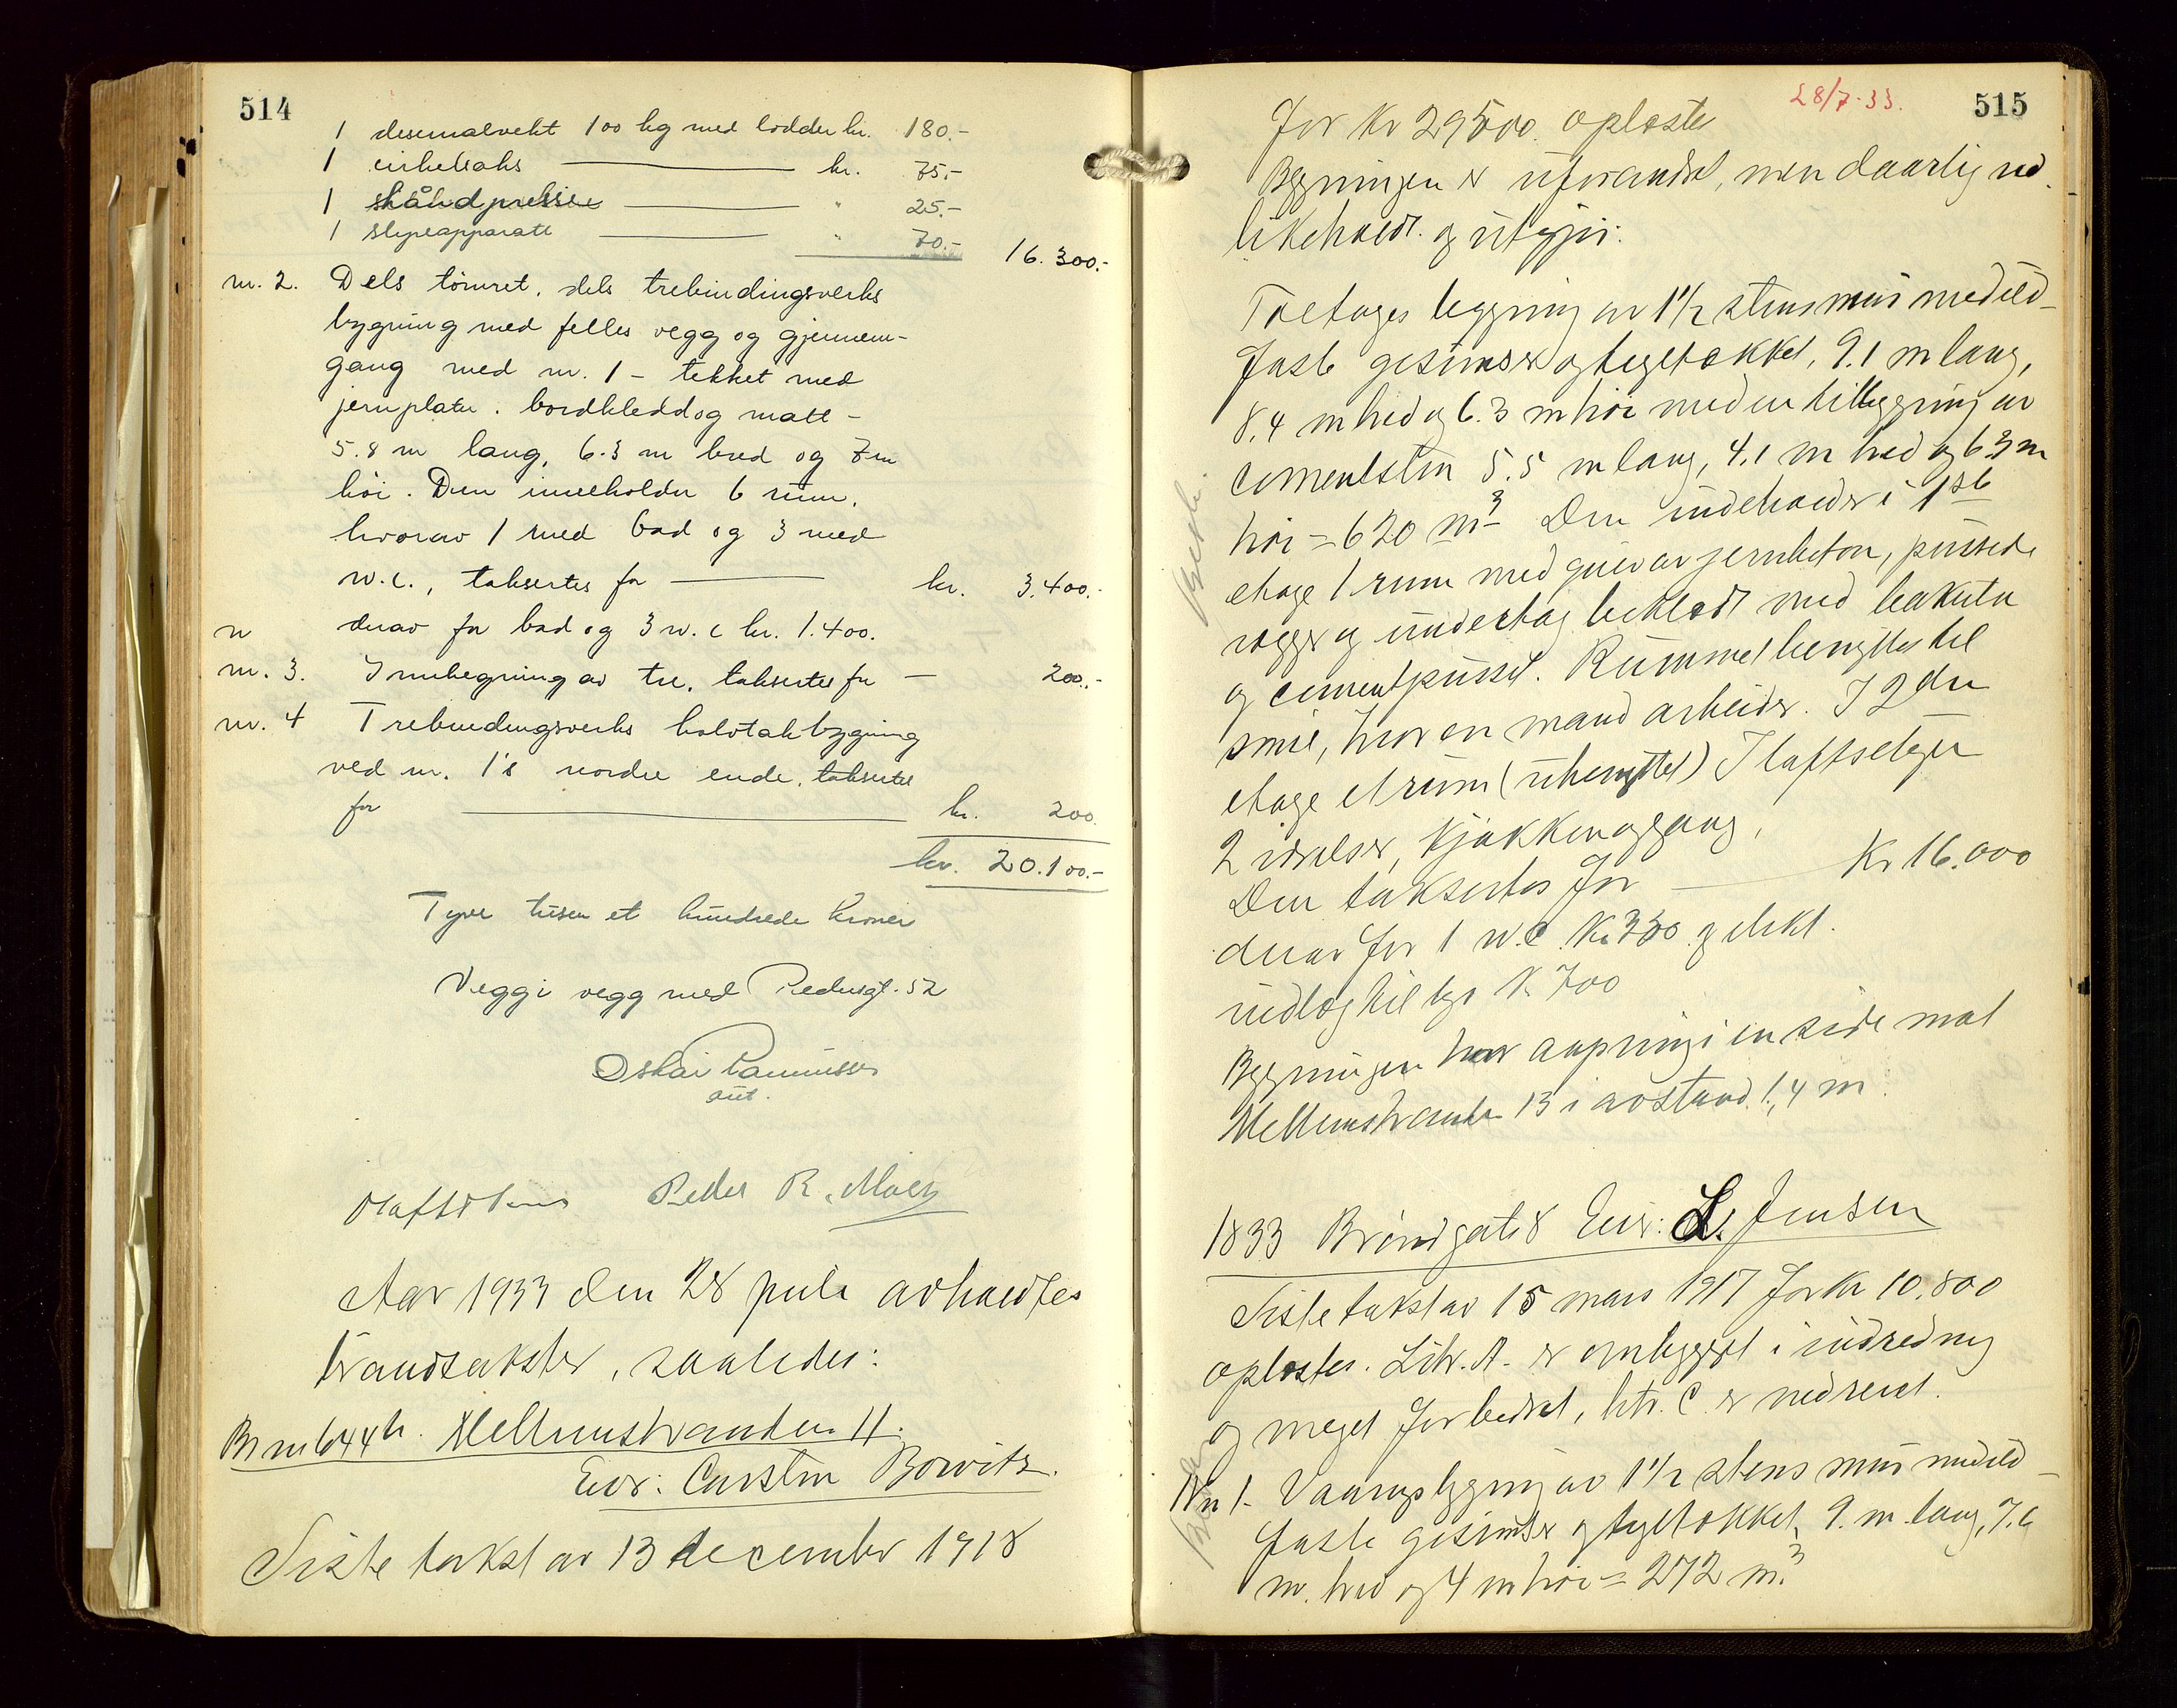 514
1 desemalvekt 100 kg med lodder kr. 180.-
1 cirkelsaks kr. 75.-
1 håndpresse " 25.-
1 slipeapparatt " 70.- 16.300.-
nr. 2. Dels tømret, dels trebindingsverks
bygning med felles vegg og gjennem-
gang med nr. 1 - tekket med
jernplater. bordkledd og malt -
5.8 m lang, 6.3 m bred og 7 m
høi. Den inneholder 6 rum,
hvorav 1 med bad og 3 med
w.c., taksertes for kr. 3.400.-
derav for bad og 3 w.c kr. 1.400.
nr. 3. Innbygning av tre, taksertes for - 200.-
nr. 4 Trebindingsverks halvtakbygning
ved nr. 1's nordre ende, taksertes
for kr. 200.
kr. 20.100.-
Tyve tusen et hundrede kroner
Vegg i vegg med Pedersgt. 52
Oskar Rasmussen
Peder R.
Aar 1933 den 28 juli avholdtes
brandtakster, saaledes:
Br nr 644 h. Mellemstranden 11.
Eier: Carsten Borvitz.
Siste takst av 13 december 1918
28/7-33. 515
for Kr 29500. opløstes
Bygningen er uforandret, men daarlig ved
likeholdt. og utgjør:
Toetages bygning av 1 1/2 stens mur med ild-
faste gesimser og tegltækket, 9.1 m lang,
8.4 m bred og 6.3 m høi med en tilbygning av
cementsten 5.5 m lang, 4.1 m bred og 6.3 m
høi = 620 m3 Den indeholder i 1ste
etage 1 rum med gulv av jernbeton, pussede
vægger og undertag beklædt med
og cementpusset. Rummet benyttes til
smie, hvor en mand arbeider. I 2den
etage et rum (ubenyttet) I loftsetagen
2 værelser, kjøkken og gang.
Den taksertes for Kr 16.000
derav for 1 w.c. Kr 350 og elekt.
indlæg til lys Kr 700
Bygningen har aapning i en side mot
Mellemstranden 13 i avstand 1,4 m
1833 Brøndgate 8 Eier: L. Jensen
Siste takst av 15 mars 1917 for Kr 10.800
opløstes. Litr. A. er ombygget i indredning
og meget forbedret, litr. C. er nedrevet.
Nr 1. Vaaningsbygning av 1 1/2 stens mur med ild-
faste gesimser og tegltækket, 9. m lang, 7.6
m. bred og 4 m høi = 272 m.3